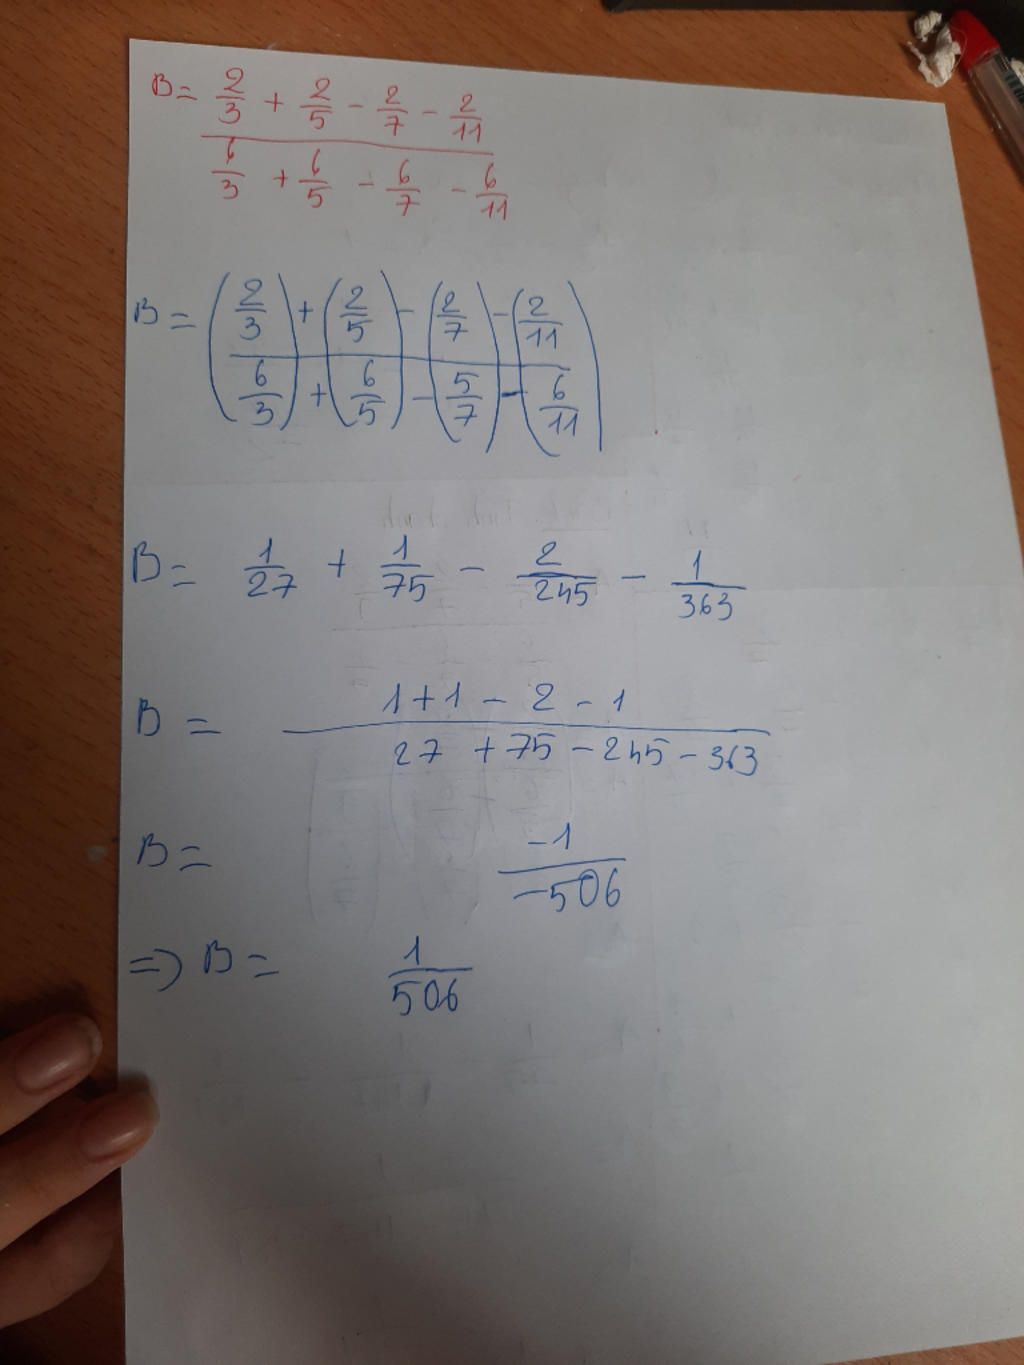 B = 2/3 + 2/5 - 2/7 - 2/11
6/3 + 6/5 - 6/7 - 6/11
B = (2/3) + (2/5) - (2/7) - (2/11)
(6/3) + (6/5) - (5/7) - (6/11)
B = 1/27 + 1/75 - 2/245 - 1/363
B = 1 + 1 - 2 - 1
27 + 75 - 245 - 363
B = -1
-506
=> B = 1
506